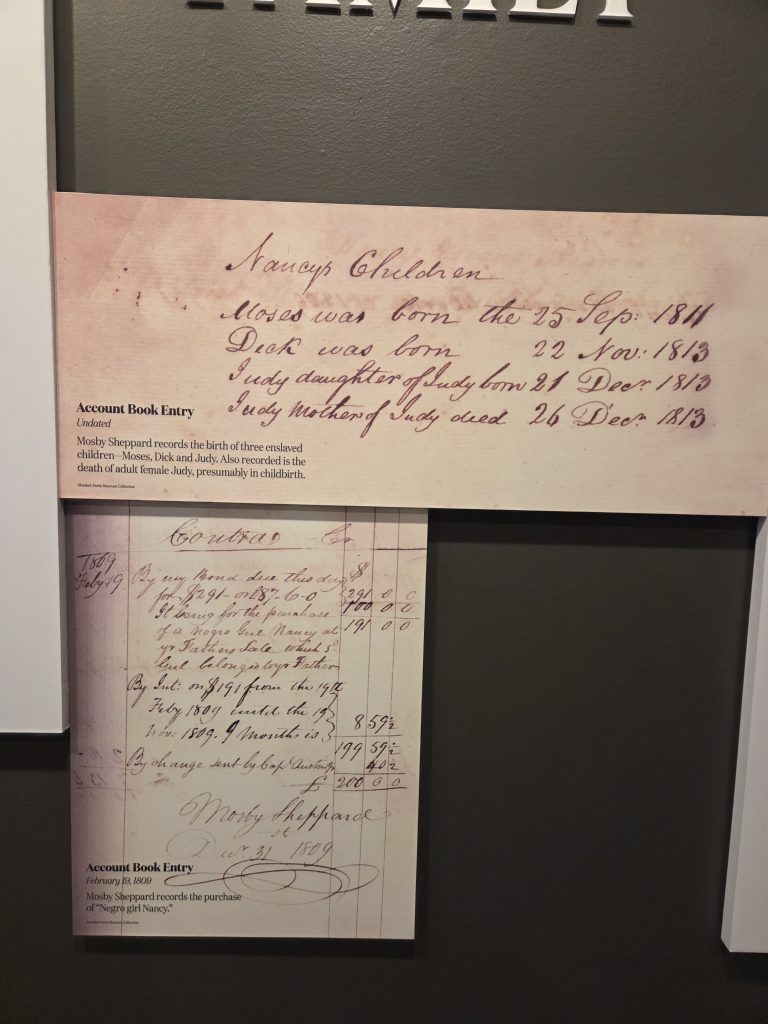 FAMILY
Nancys Children
Moses was born the 25 Sep: 1811
Dick was born 22 Nov: 1813
Judy daughter of Judy born 21 Decr 1813
Judy Mother of Judy died 26 Decr 1813
Account Book Entry
Undated
Mosby Sheppard records the birth of three enslaved
children—Moses, Dick and Judy. Also recorded is the
death of adult female Judy, presumably in childbirth.
Meadow Farm Museum Collection
Contra Cr
1809
Feby 19 By my Bond due this day $
for $291 - or £87-6-0 291 0 0
It being for the purchase 100 0 0
of a Negro Girl Nancy at 191 0 0
yr Fathers Sale which sd
Girl belonged to yr Father
By Int: on $191 from the 19th
Feby 1809 until the 19
Nov: 1809. 9 Months is 8 59½
199 59½
By change sent by Capt Austin 40½
£ 200 0 0
Mosby Sheppard
Decr 31 1809
Account Book Entry
February 19, 1809
Mosby Sheppard records the purchase
of "Negro girl Nancy."
Meadow Farm Museum Collection